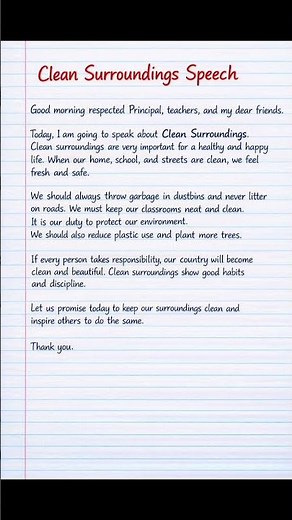 Clean Surroundings Speech
Good morning respected Principal, teachers, and my dear friends.
Today, I am going to speak about Clean Surroundings.
Clean surroundings are very important for a healthy and happy
life. When our home, school, and streets are clean, we feel
fresh and safe.
We should always throw garbage in dustbins and never litter
on roads. We must keep our classrooms neat and clean.
It is our duty to protect our environment.
We should also reduce plastic use and plant more trees.
If every person takes responsibility, our country will become
clean and beautiful. Clean surroundings show good habits
and discipline.
Let us promise today to keep our surroundings clean and
inspire others to do the same.
Thank you.